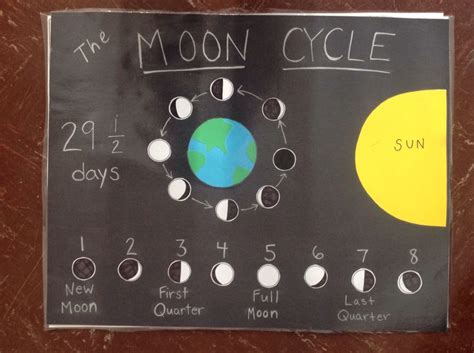 The MOON CYCLE
29 1/2
days
SUN
1 2 3 4 5 6 7 8
New First Full Last
Moon Quarter Moon Quarter